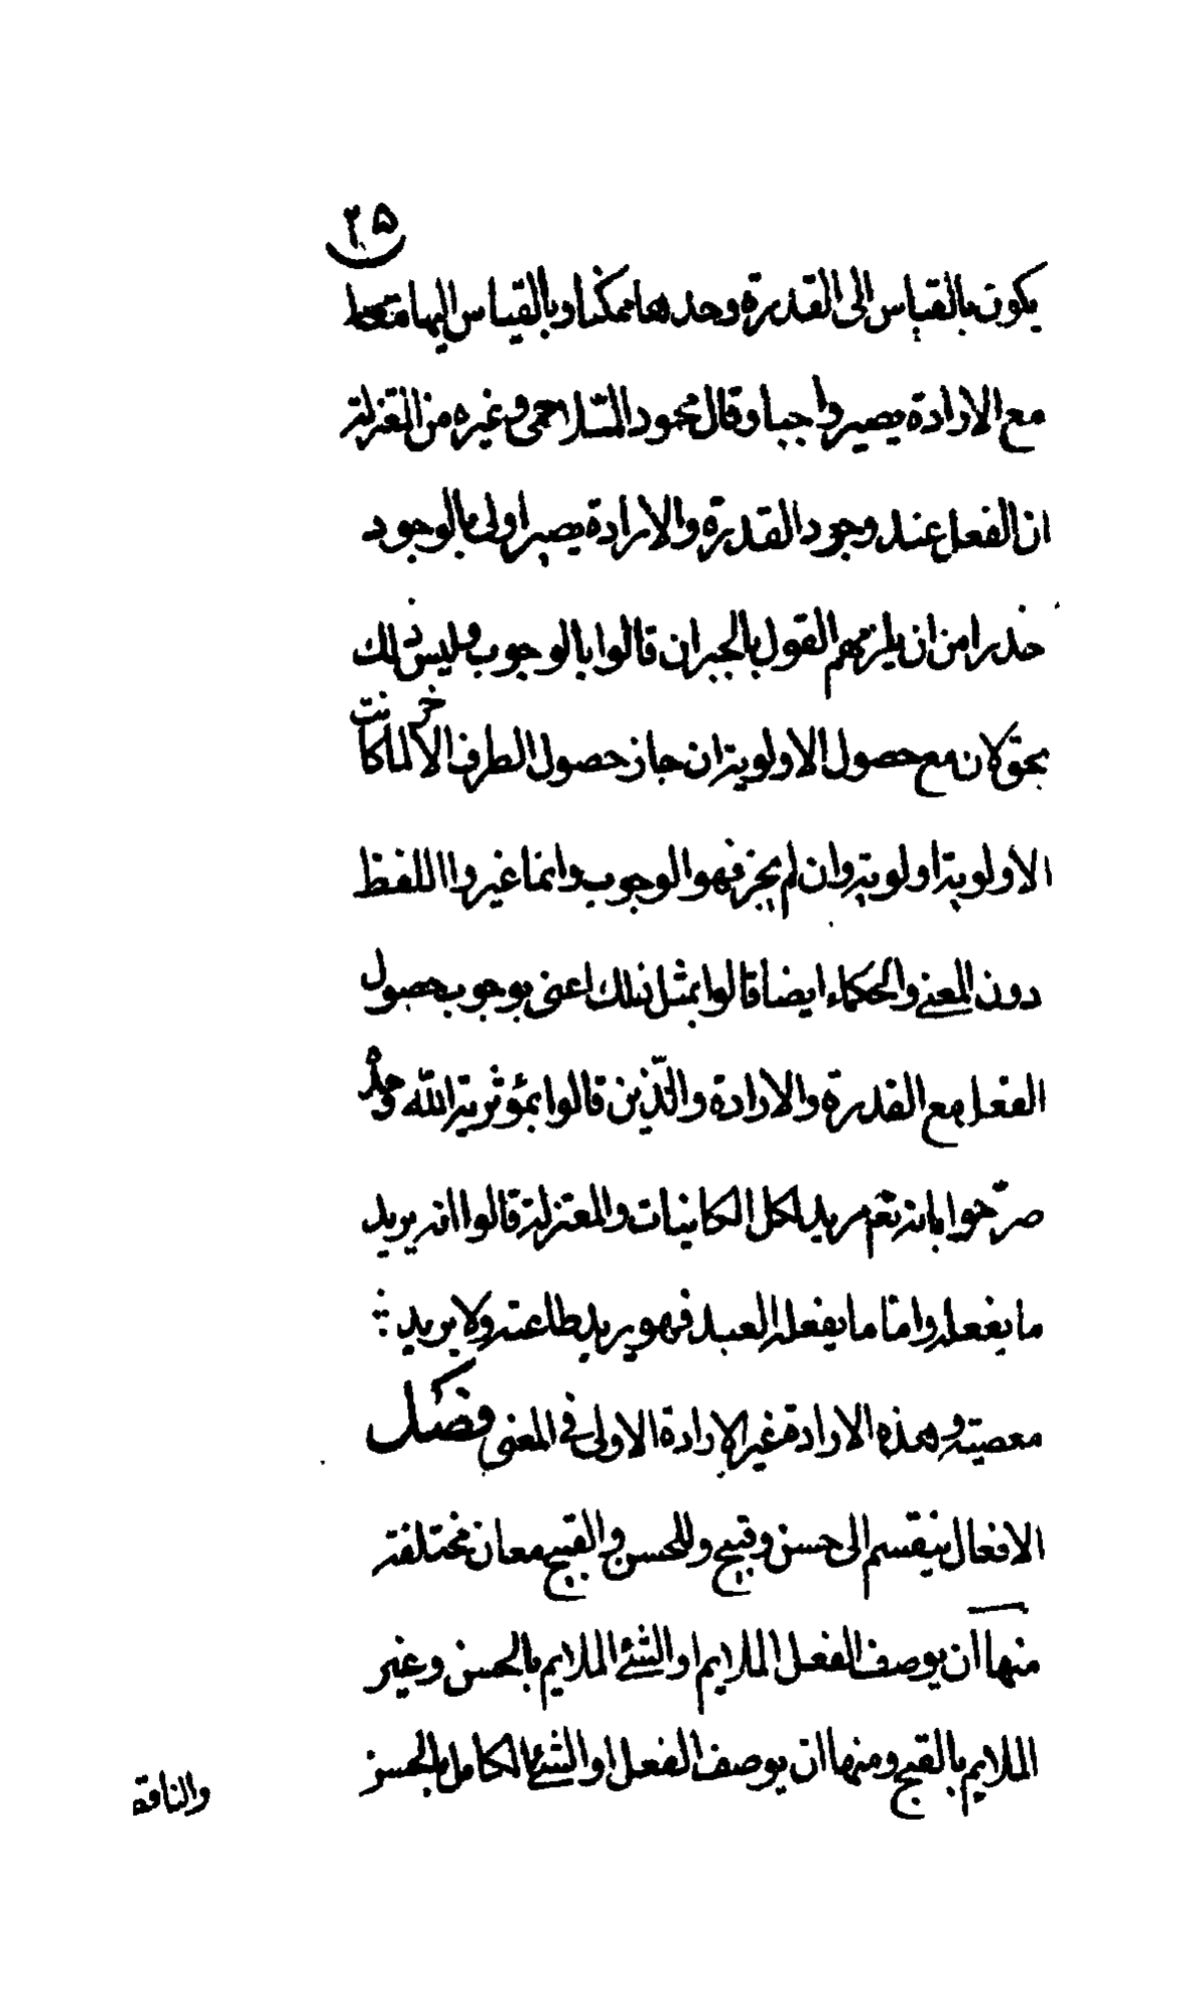 ٢٥
يكون بالقياس الى القدرة وحدها ممكنا و بالقياس اليها
مع الارادة يصير واجبا وقال محمود الملاحمى وغيره من المعتزلة
ان الفعل عند وجود القدرة والارادة يصير اولى بالوجود
حذرا من ان يلزمهم القول بالجبر ان قالوا بالوجوب وليس ذلك
بحق لان مع حصول الاولوية ان جاز حصول الطرف الاخر لما كانت
الاولوية اولوية وان لم يجز فهو الوجوب وانما غيروا اللفظ
دون المعنى والحكماء ايضا قالوا بمثل ذلك اعنى بوجوب حصول
الفعل مع القدرة والارادة والّذين قالوا بمؤثرية اللّه وحده
صرّحوا بانه تعم مريد لكل الكاينات والمعتزلة قالوا انه يريد
ما يفعله وامّا ما يفعله العبد فهو يريد طاعته ولا يريد
معصيته وهذه الارادة غير الارادة الاولى فى المعنى فصل
الافعال ينقسم الى حسن وقبيح وللحسن والقبيح معان مختلفة
منها ان يوصف الفعل الملايم او الشئ الملايم بالحسن وغير
الملايم بالقبح ومنها ان يوصف الفعل او الشئ الكامل بالحسن